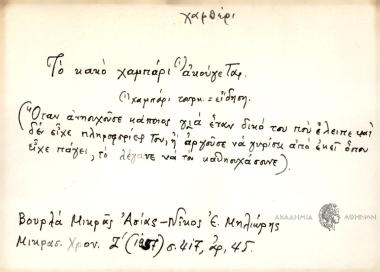 χαμπέρι
Τὸ κακὸ χαμπάρι ¹) ἀκούγεται.
¹) χαμπάρι τουρκ. = εἴδηση.
(Ὅταν ἀνησυχοῦσε κάποιος γιὰ ἕναν δικό του ποὺ ἔλειπε καὶ
δὲν εἶχε πληροφορίες του, ἢ ἀργοῦσε νὰ γυρίση ἀπὸ ἐκεῖ ὅπου
εἶχε πάγει, τὸ λέγανε νὰ τὸν καθησυχάσουνε).
Βουρλὰ Μικρᾶς Ἀσίας – Νῖκος Ε. Μηλιώρης
Μικρασ. Χρον. Ζ' (1957) σ. 417, ἀρ. 45.
ΑΚΑΔΗΜΙΑ ΑΘΗΝΩΝ